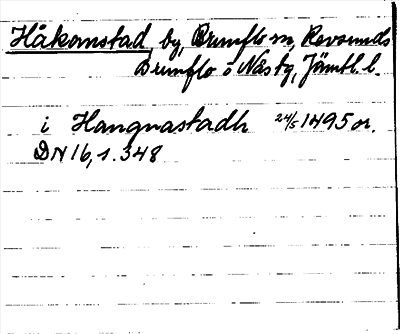 Håkanstad by, Brunflo sn, Revsunds
Brunflo o Näs tg, Jämtl. l.
i Hangnastadh 24/5 1495 or.
DN 16, s. 348